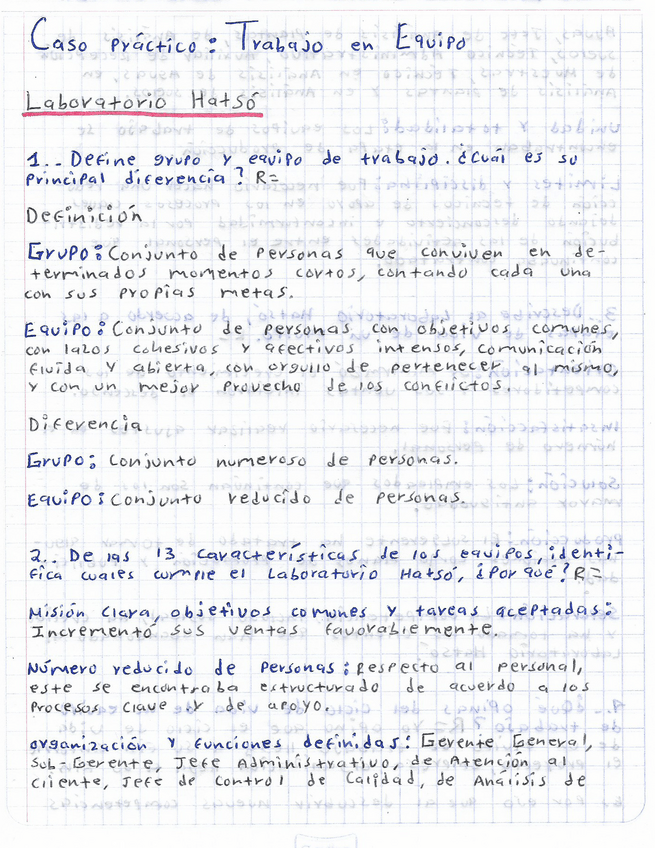 Caso Práctico: Trabajo en Equipo
Laboratorio Hatsó
1.- Define grupo y equipo de trabajo. ¿Cuál es su
Principal diferencia? R=
Definición
Grupo: Conjunto de Personas que conviven en de-
terminados momentos cortos, contando cada una
con sus propias metas.
Equipo: Conjunto de personas con objetivos comunes,
con lazos cohesivos y afectivos intensos, comunicación
fluida y abierta, con orgullo de pertenecer al mismo,
y con un mejor provecho de los conflictos.
Diferencia
Grupo: Conjunto numeroso de personas.
Equipo: Conjunto reducido de personas.
2.- De las 13 características de los equipos, identi-
fica cuales cumple el Laboratorio Hatsó, ¿Por qué? R=
Misión Clara, objetivos comunes y tareas aceptadas:
Incrementó sus ventas favorablemente.
Número reducido de Personas: Respecto al personal,
este se encontraba estructurado de acuerdo a los
Procesos clave y de apoyo.
organización y funciones definidas: Gerente General,
Sub-Gerente, Jefe Administrativo, de Atención al
cliente, Jefe de control de Calidad, de Análisis de